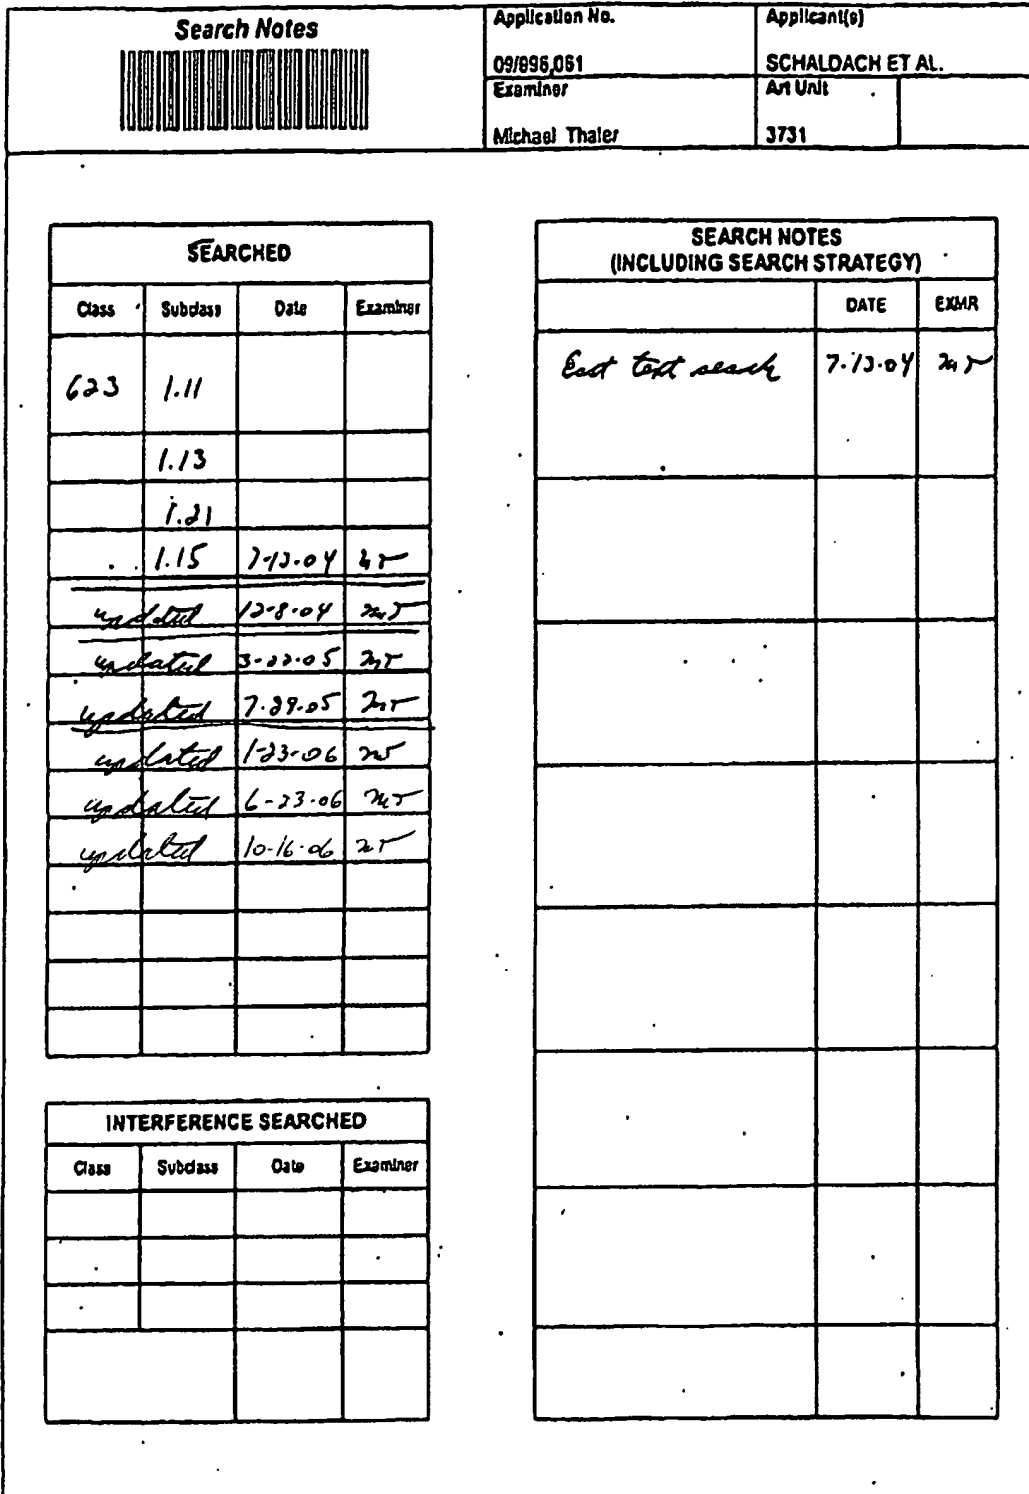 Search Notes
Application No.
09/896,061
Applicant(s)
SCHALDACH ET AL.
Examiner
Michael Thaler
Art Unit
3731
SEARCHED
Class Subclass Date Examiner
623 1.11
1.13
1.21
1.15 7-12-04 MT
updated 12-8-04 MT
updated 3-22-05 MT
updated 7-29-05 MT
updated 1-23-06 MT
updated 6-23-06 MT
updated 10-16-06 MT
INTERFERENCE SEARCHED
Class Subclass Date Examiner
SEARCH NOTES
(INCLUDING SEARCH STRATEGY)
DATE EXMR
East text search 7-12-04 MT